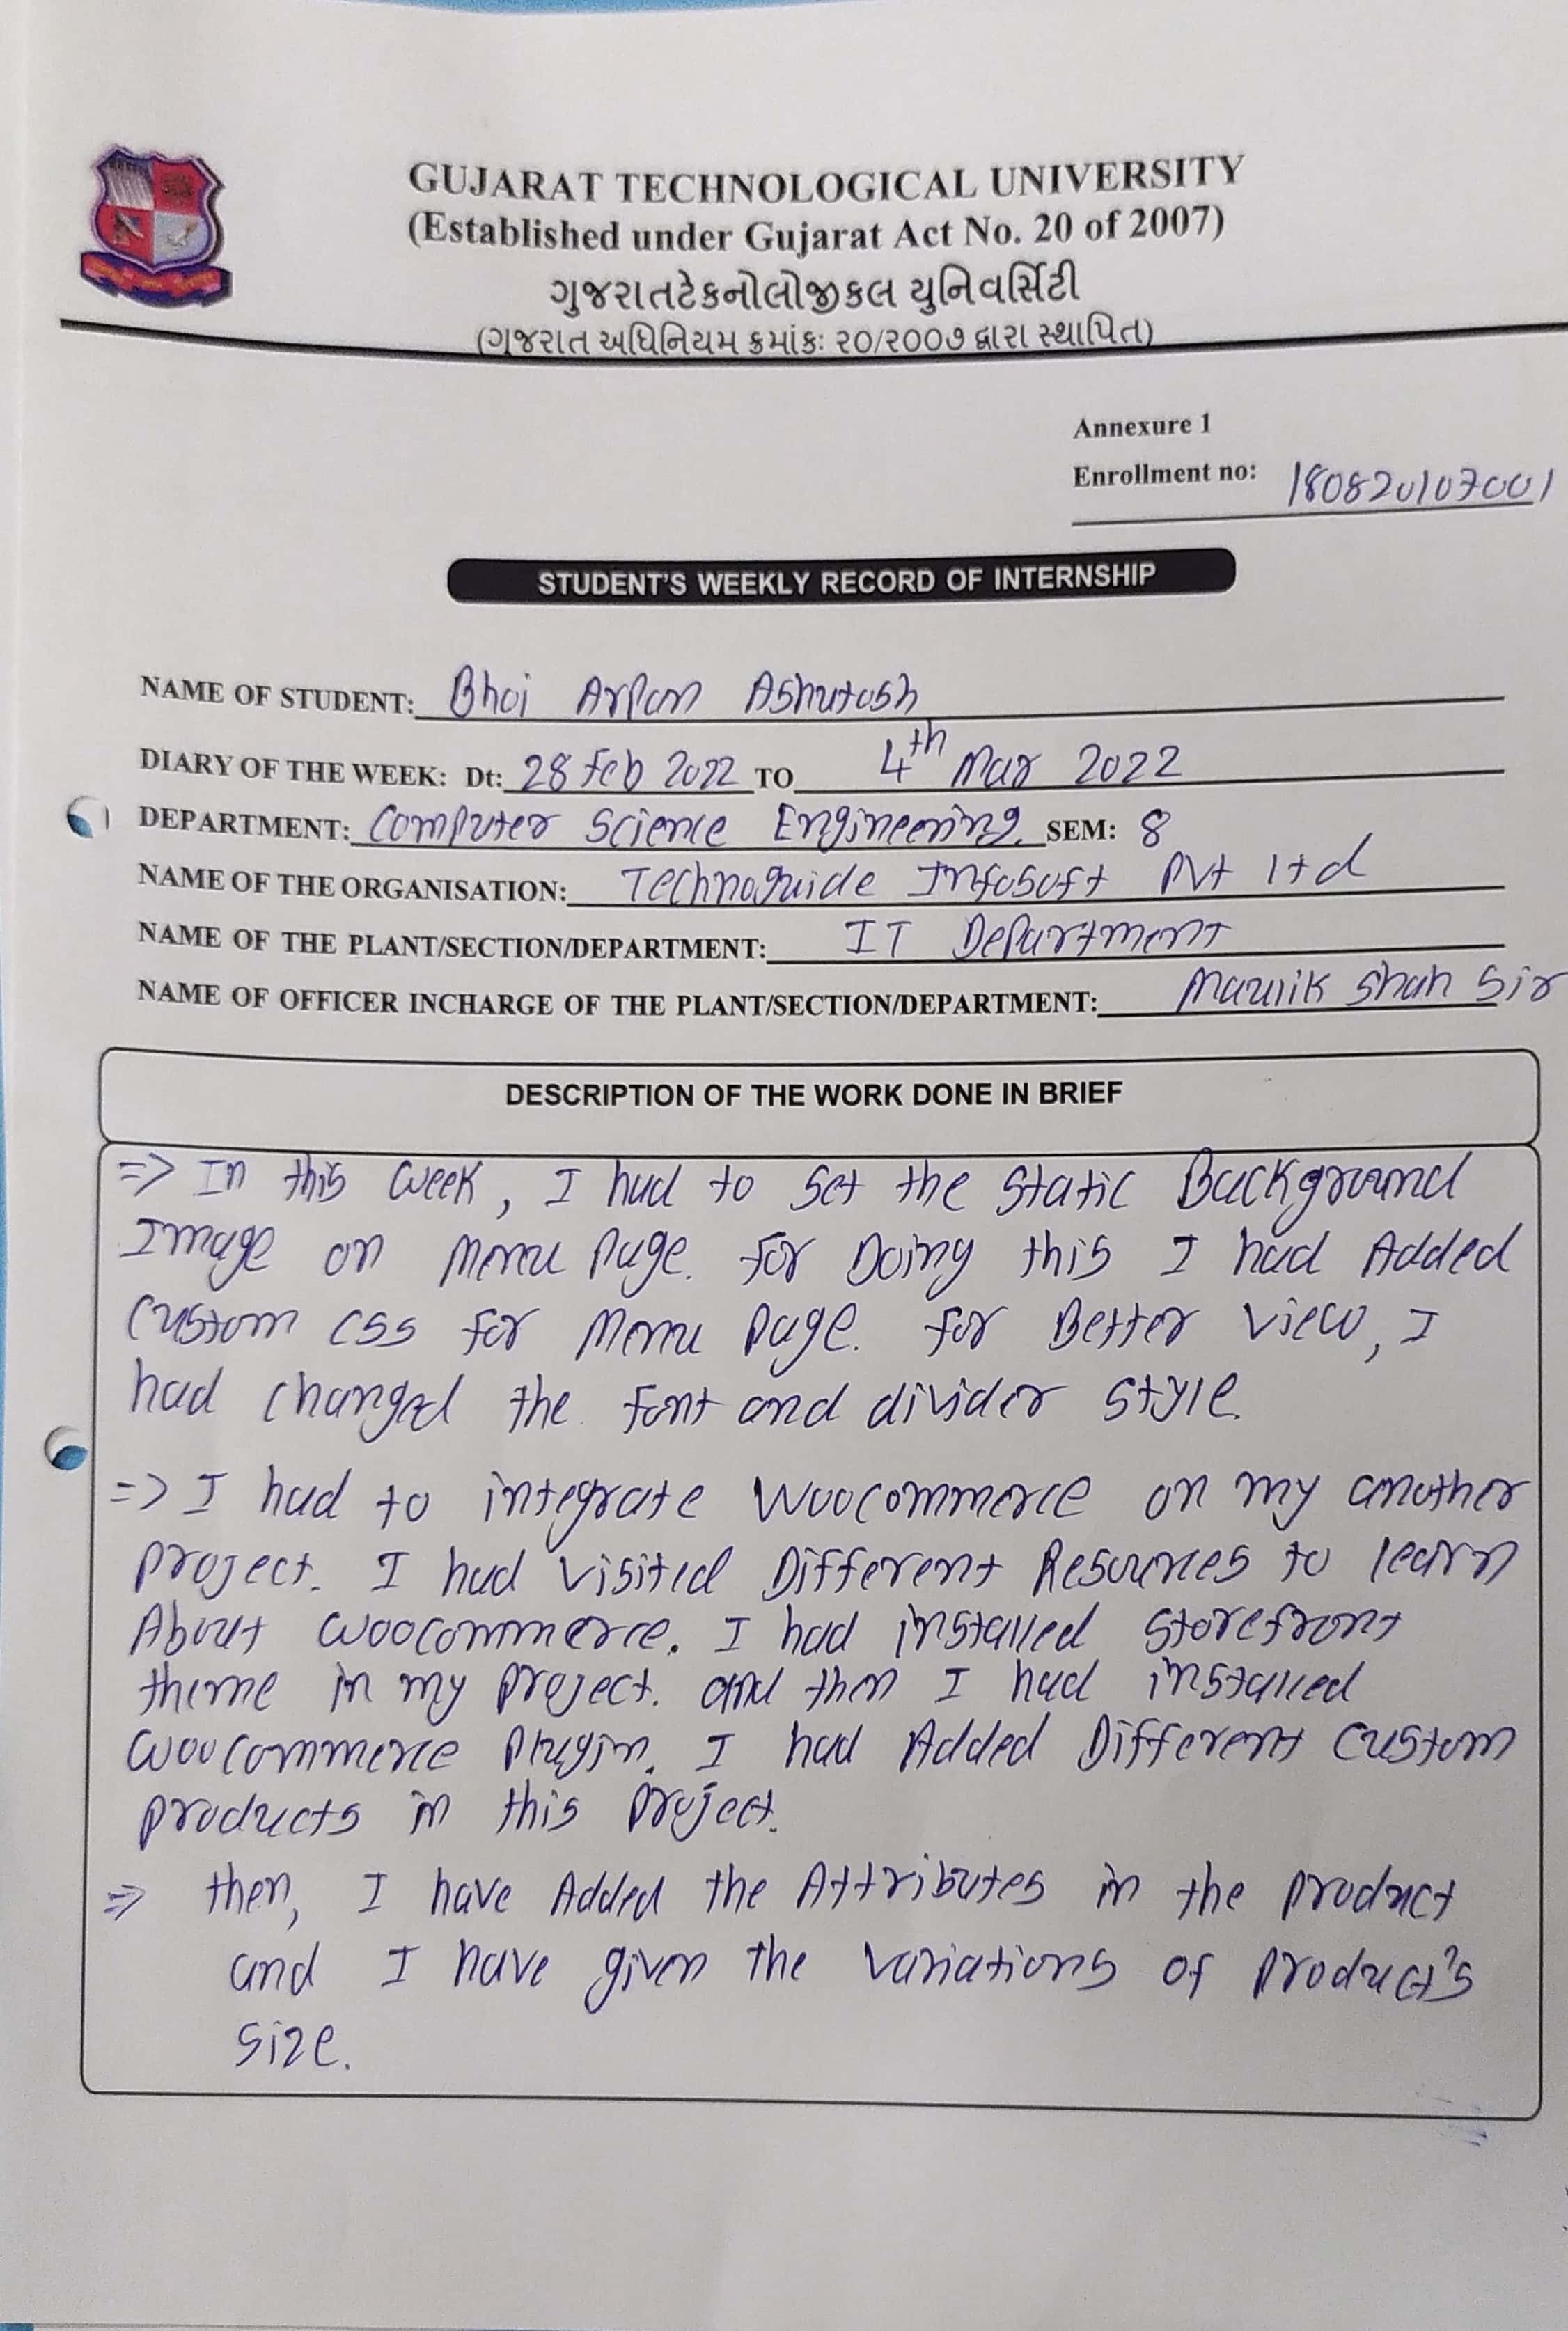 GUJARAT TECHNOLOGICAL UNIVERSITY
(Established under Gujarat Act No. 20 of 2007)
ગુજરાતટેકનોલોજીકલ યુનિવર્સિટી
(ગુજરાત અધિનિયમ ક્રમાંકઃ ૨૦/૨૦૦૭ દ્વારા સ્થાપિત)
Annexure 1
Enrollment no: 180820107001
STUDENT'S WEEKLY RECORD OF INTERNSHIP
NAME OF STUDENT: Bhoi Arpan Ashutosh
DIARY OF THE WEEK: Dt: 28 Feb 2022 TO 4th Mar 2022
DEPARTMENT: Computer Science Engineering. SEM: 8
NAME OF THE ORGANISATION: Technoguide Infosoft Pvt ltd
NAME OF THE PLANT/SECTION/DEPARTMENT: IT Department
NAME OF OFFICER INCHARGE OF THE PLANT/SECTION/DEPARTMENT: Shah Sir
DESCRIPTION OF THE WORK DONE IN BRIEF
=> In this week, I had to set the static Background
Image on Menu Page. For Doing this I had Added
Custom CSS for Menu Page. For Better view, I
had changed the font and divider style.
=> I had to integrate Woocommerce on my another
project. I had visited Different Resources to learn
About Woocommerce. I had installed storefront
theme in my project. and then I had installed
Woocommerce Plugin. I had Added Different Custom
products in this project.
=> then, I have Added the Attributes in the product
and I have given the variations of product's
size.